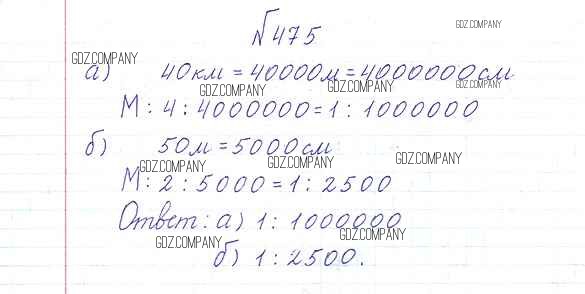 №475
GDZ.COMPANY
GDZ.COMPANY
а) 40км = 40000м = 4000000см
GDZ.COMPANY GDZ.COMPANY GDZ.COMPANY
М: 4 : 4000000 = 1 : 1000000
б) 50м = 5000см
GDZ.COMPANY GDZ.COMPANY GDZ.COMPANY
М: 2 : 5000 = 1 : 2500
Ответ: а) 1 : 1000000
GDZ.COMPANY GDZ.COMPANY
б) 1 : 2500.